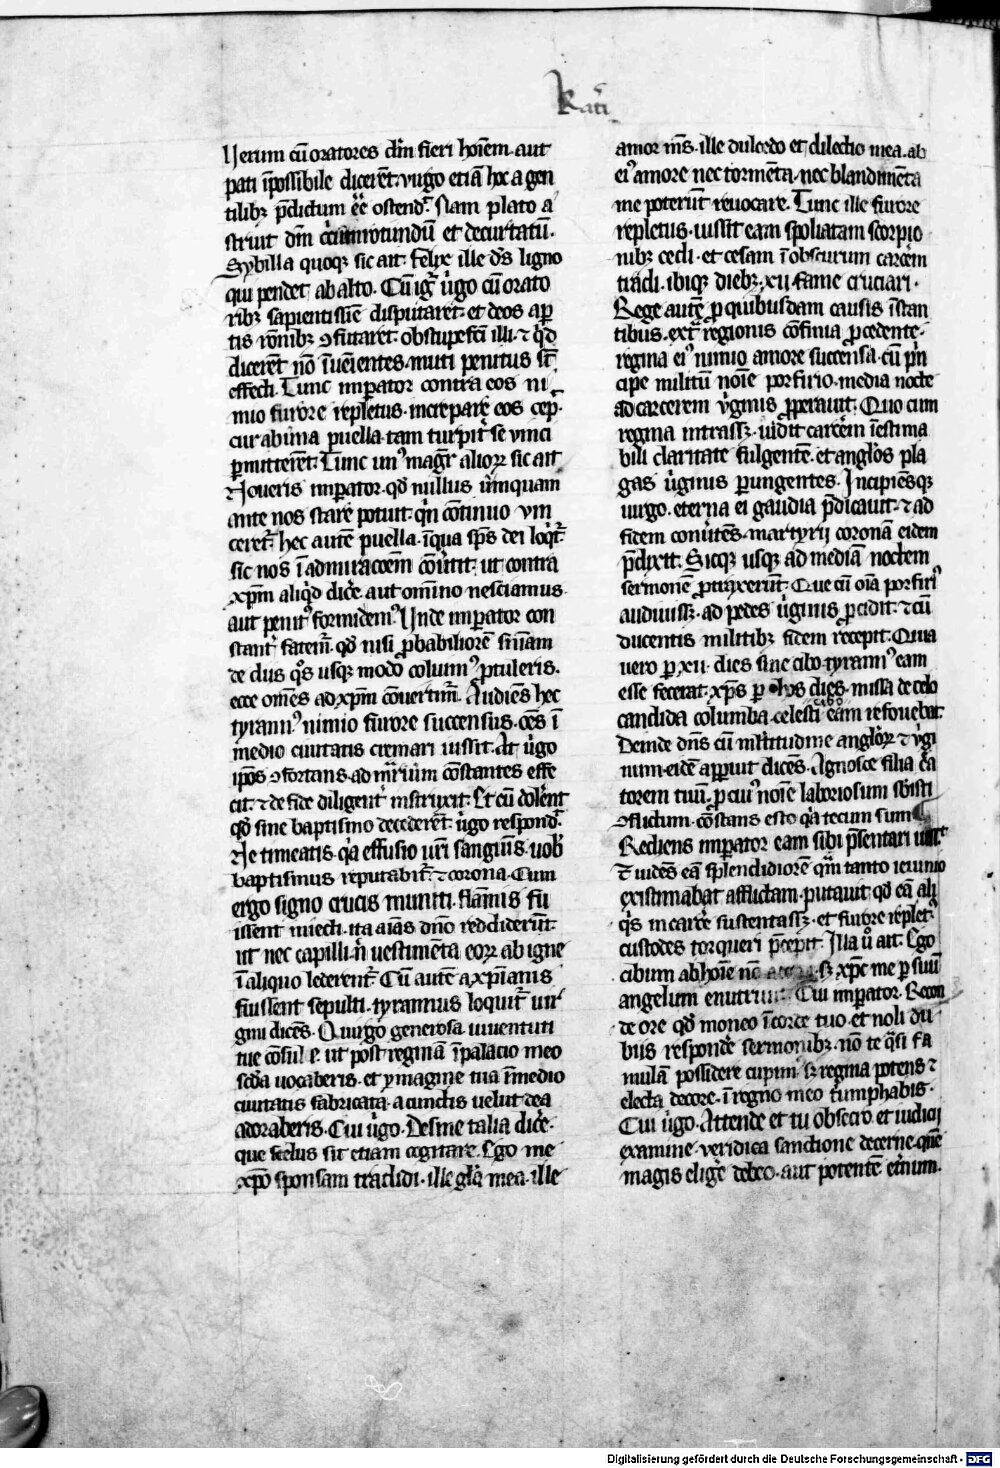 Kat͛i
Uerum cū oratores dm̄ fieri hoīem aut
pati īpossibile dicerēt. uirgo etiā hoc a gen
tilibꝫ p̄dictum eē ostendꝭ. Nam plato a
struit dm̄ circumrotundū et decurtatū.
Sybilla quoqꝫ sic ait. felix ille ds̄ ligno
qui pendet ab alto. Cū igr̄ ũgo cū orato
ribꝫ sapientissīe disputaret. et deos aper
tis rōnibꝫ ꝯfutaret. obstupefc̄i illi. ⁊ qͥd
dicerēt nō īueīentes. muti penitus st̄
effecti. Tunc imꝑator contra eos ni
mio furore repletus. increpare eos cepͭ.
cur ab una puella tam turpit̃ se vinci
ꝑmitterēt. Tunc unꝰ magr̄ alioꝝ sic ait
Noueris imꝑator. qd̄ nullus ūmquam
ante nos stare potuit. qn̄ cōtinuo vin
ceret̃. hec autē puella. ī qua sp̄s dei loqͭr̃
sic nos ī admiracōem cōũtit. ut contra
xp̄m aliqͥd dic̃e aut omīno nesciamus.
aut penitꝰ formidemꝰ. Unde imꝑator con
stant̃ fatem̃. qd̄ nisi ꝓbabiliorē sn̄iam
de diis qͦs usqꝫ modo colimꝰ ꝓtuleris.
ecce om̄es ad xp̄m cōuertim̃. Audiēs hec
tyrannꝰ nimio furore succensus. oēs ī
medio ciuitatis cremari iussit. At ũgo
ip̄os ꝯfortans. ad mr̄rium cōstantes effe
cit. ⁊ de fide diligent̃ instruxit. Et cū dolerēt
qd̄ sine baptismo decederēt. ũgo respondͭ.
Ne timeatis. qͥa effusio ur̄i sanguīs. uob̄
baptismus reputabit̃. ⁊ corona. Cum
ergo signo crucis muniti. flāmis fu
issent iniecti. ita aīas dn̄o reddiderūt.
ut nec capilli. n̄ uestimēta eoꝝ ab igne
ī aliquo lederent̃. Cū autē a xp̄ianis
fuissent sepulti. tyrannus loquit̃ uir
gini dicēs. O uirgo generosa iuuentuti
tue cōsule. ut post reginā ī palacio meo
scd̄a uocaberis. et ymagine tua ī medio
ciuitatis fabricata. a cunctis uelut dea
adoraberis. Cui ũgo. Desine talia dic̃e.
que scelus sit etiam cogitare. Ego me
xp̄o sponsam tradidi. ille glͥa mea. ille
amor ms̄. ille dulcedo et dilectio mea. ab
eiꝰ amore nec tormēta. nec blandimēta
me poterūt reuocare. Tunc ille furore
repletus. iussit eam spoliatam scorpio
nibꝫ cedi. et cesam ī obscurum carc̃em
tradi. ibiqꝫ diebꝫ. xii. fame cruciari.
Rege autē ꝓ quibusdam causis īstan
tibus. ext̃ regionis cōfinia ꝓcedente.
regina eiꝰ nimio amore succensa. cū pͥn
cipe militū noīe porfirio. media nocte
ad carcerem ũginis ꝓperauit. Quo cum
regina intrassꝫ. uidit carc̃em īestima
bili claritate fulgentē. et anglo̓s pla
gas ũginis ꝑungentes. Incipiēsqꝫ
uirgo. eterna ei gaudia p̄dicauit. ⁊ ad
fidem conũtēs. martyrij coronā eidem
p̄dixit. Sicqꝫ usqꝫ ad mediā noctem
sermonē ꝓtraxerūt. Que cū oīa porfiriꝰ
audiuissꝫ. ad pedes ũginis ꝓcidit. ⁊ cū
ducentis militibꝫ fidem recepit. Quia
uero ꝑ. xii. dies sine cibo tyrannꝰ eam
esse fecerat. xp̄s ꝑ hos dies. missa de celo
candida columba. celesti cibo eam refouebat.
Deinde dn̄s cū multitudine angloꝝ ⁊ ũgi
num eidē apparuit dicēs. Agnosce filia c̃a
torem tuū. ꝓ cuiꝰ noīe laboriosum sb̄isti
ꝯflictum. cōstans esto qͥa tecum sum.
Rediens imꝑator eam sibi p̄sentari iussit
⁊ uidēs eā splendidiorē quā tanto ieiunio
existimabat afflictam. putauit qd̄ eā ali
qͥs in carc̃e sustentassꝫ. et furore replet.
custodes torqueri p̄cepit. Illa ũo ait. Ego
cibum ab hoīe nō accepi. sꝫ xp̄c me ꝑ suū
angelum enutriuit. Cui imperator. Recon
de ore qd̄ moneo ī corde tuo. et noli du
biis respondēr sermonibꝫ. nō te qͣsi fa
mulā possidere cupimꝰ. sꝫ regina potens ⁊
electa decore. ī regno meo tͥumphabis.
Cui ũgo. Attende et tu obsecro. et iudicij
examine. veridica sanctione decerne. quē
magis elig̃e debeo. aut potentē et̃num.
Digitalisierung gefördert durch die Deutsche Forschungsgemeinschaft - DFG